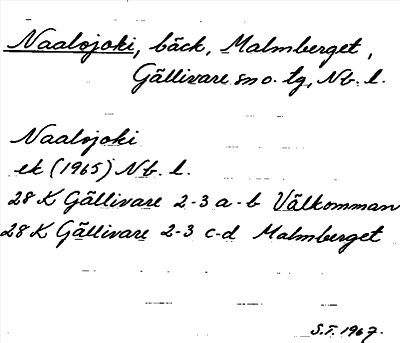 Naalojoki, bäck, Malmberget,
Gällivare sn o. tg, Nb. l.
Naalojoki
ek (1965) Nb. l.
28 K Gällivare 2-3 a-b Välkomman
28 K Gällivare 2-3 c-d Malmberget
S.T. 1967.